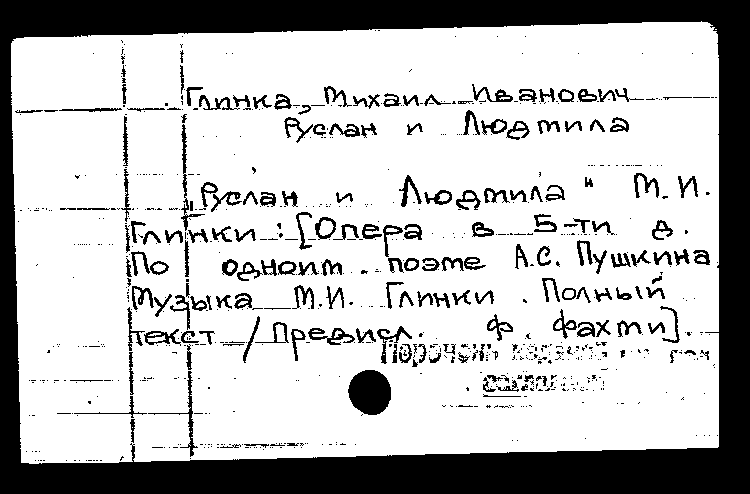 Глинка, Михаил Иванович
Руслан и Людмила
„Руслан и Людмила" М.И.
Глинки : [Опера в 5-ти д.
По одноим. поэме А.С. Пушкина.
Музыка М.И. Глинки. Полный
текст / Предисл. Ф. Фахти].
Перечень изданий